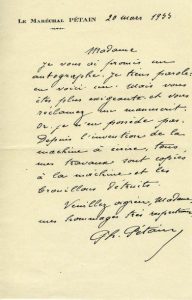 LE MARÉCHAL PÉTAIN
20 mars 1933
Madame
Je vous ai promis un
autographe. Je tiens parole
en voici un. Mais vous
êtes plus exigeante et vous
réclamez un manuscrit
Or, je n'en possède pas.
Depuis l'invention de la
machine à écrire, tous
mes travaux sont copiés
à la machine et les
brouillons détruits.
Veuillez agréer, Madame,
mes hommages très respectueux
Ph. Pétain